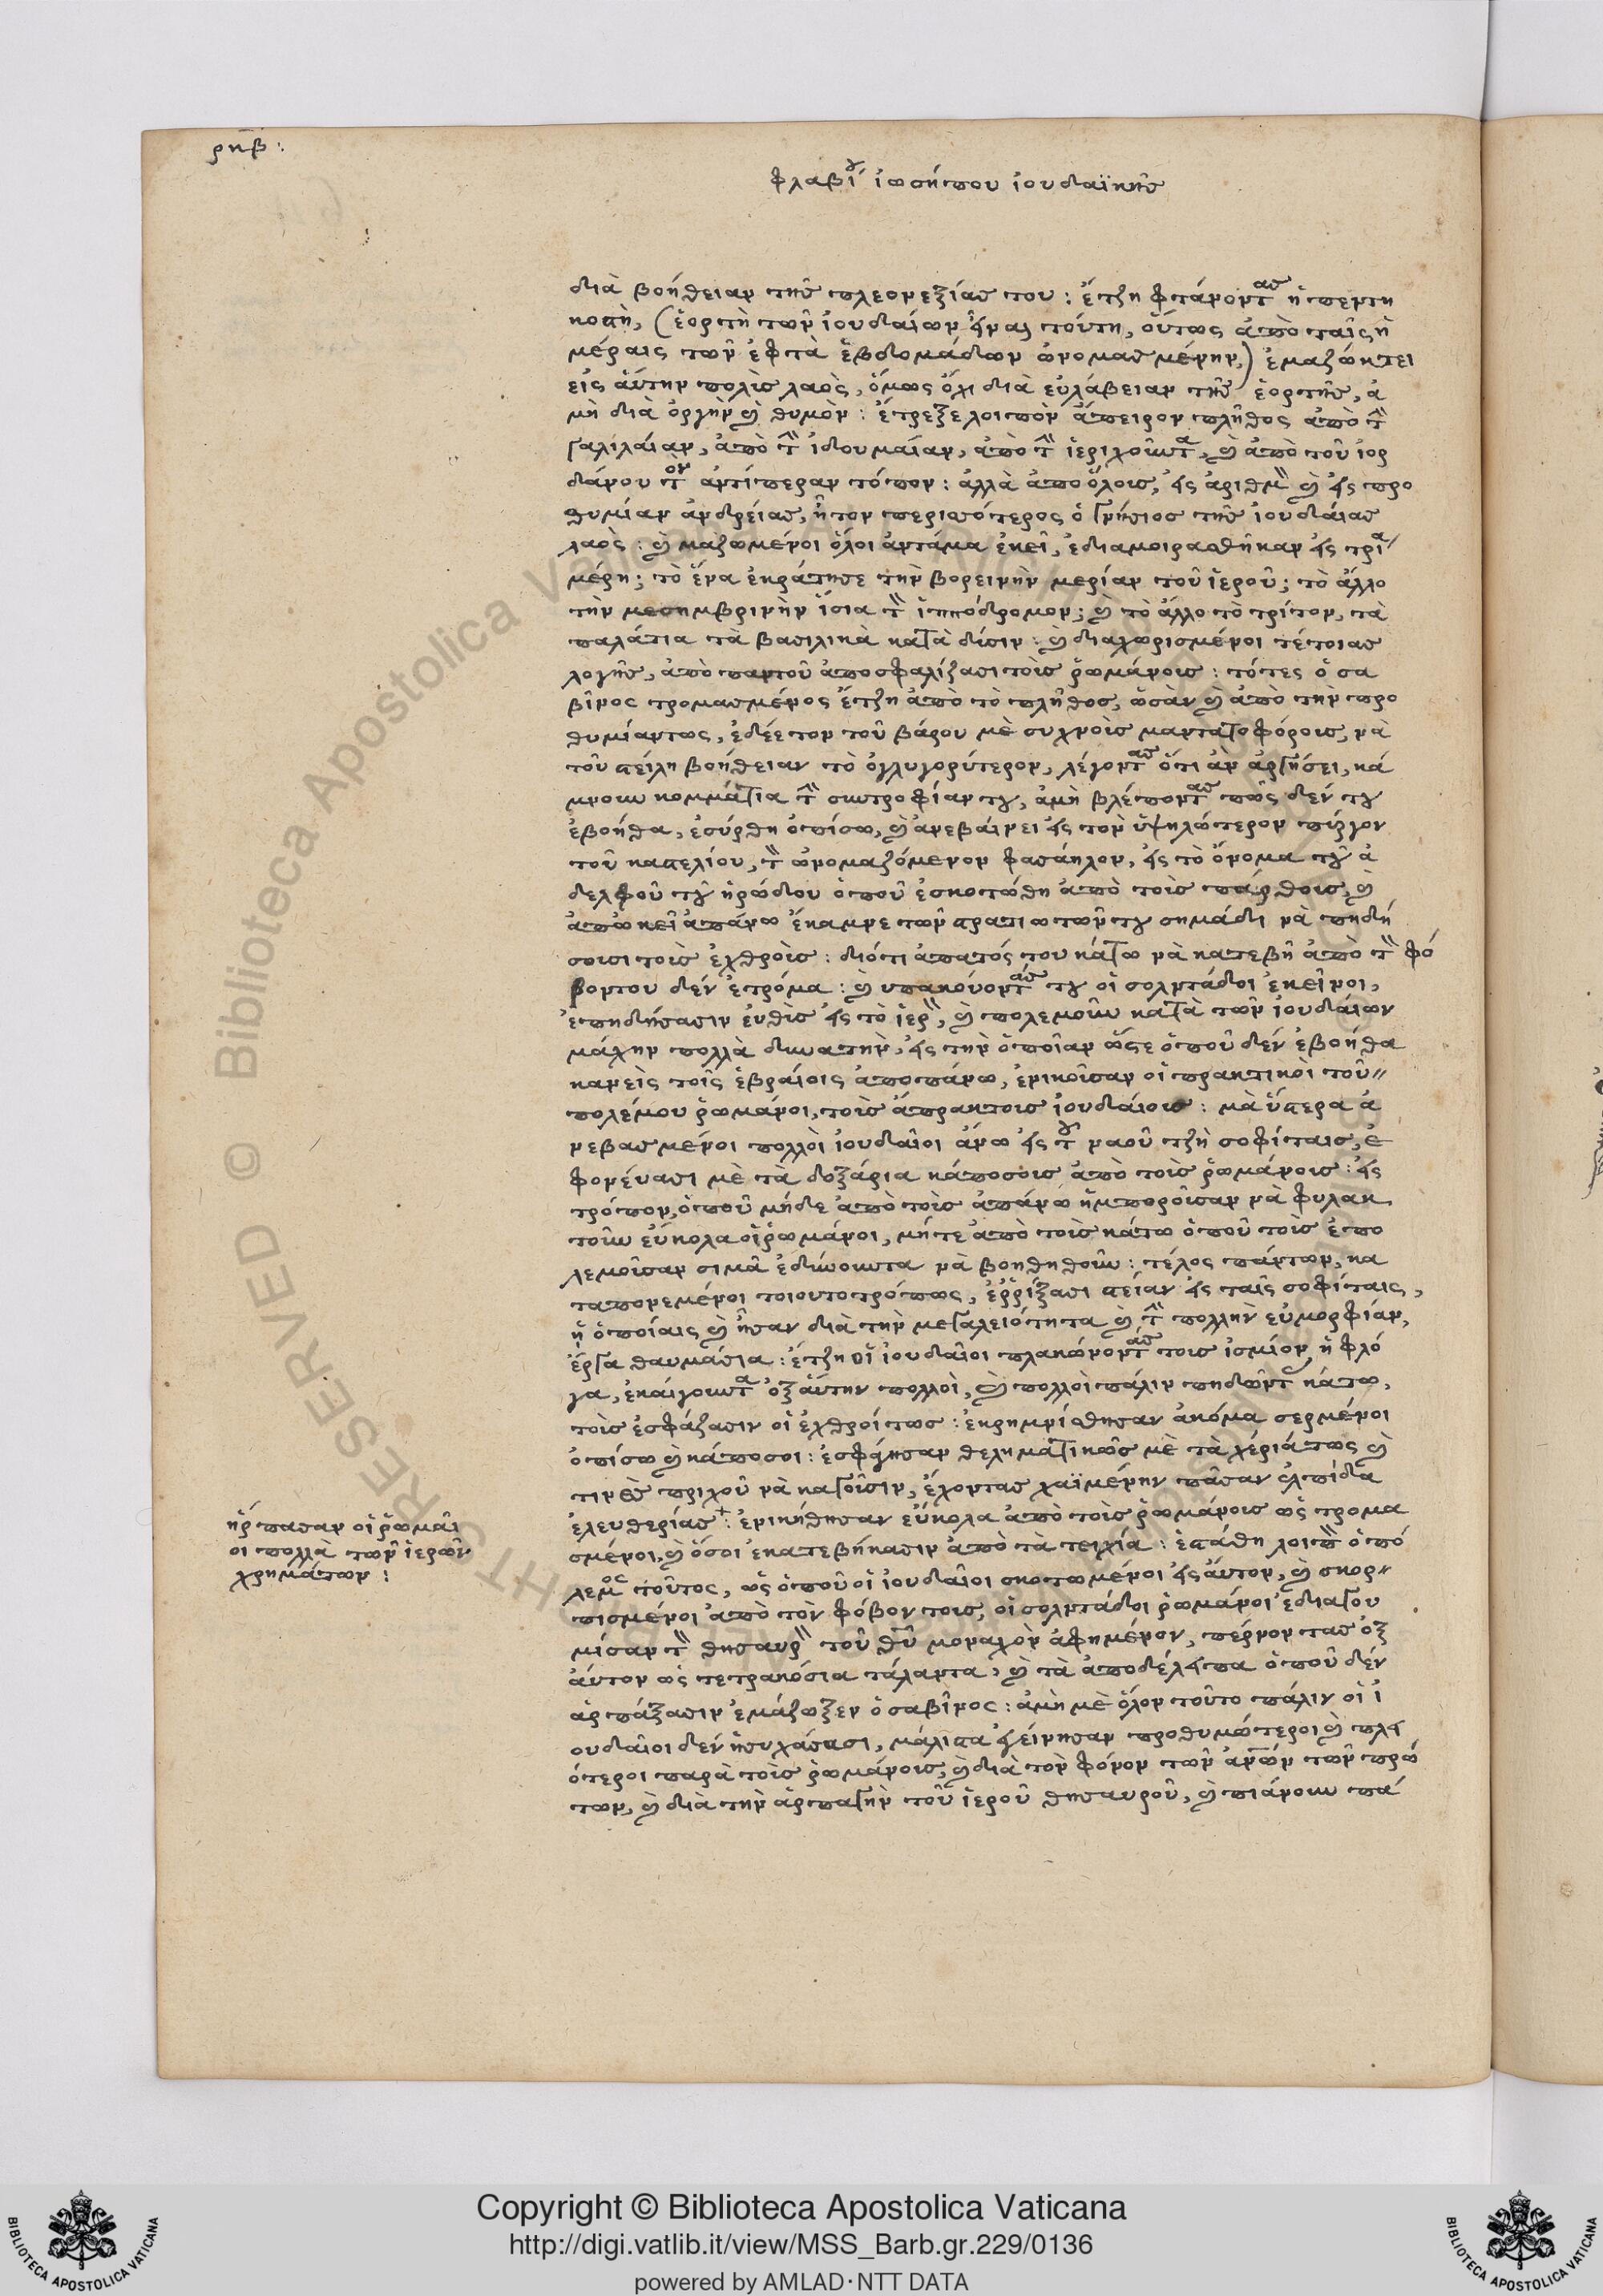 ρκβ:
φλαβί̈ου ἰωσήπου ἰουδαϊκῆς
διὰ βοήθειαν τῆς πλεονεξίας του: ἔτζη φτάνοντας ἡ πεντη
κοστὴ, (ἑορτὴ τῶν ἰουδαίων εἶναι τούτη, οὕτως ἀπὸ ταῖς ἡ
μέραις τῶν ἑφτὰ ἑβδομάδων ὠνομασμένην,) ἐμαζώχτει
εἰς ἄυτην πολὺς λαὸς, ὅμως ὄχι διὰ εὐλάβειαν τῆς ἑορτῆς, ἀ
μὴ διὰ ὀργὴν καὶ θυμὸν: ἔτρεξε λοιπὸν ἄπειρον πλῆθος ἀπὸ τὴν
γαλιλαίαν, ἀπὸ τὴν ἰδουμαίαν, ἀπὸ τὴν ἱεριχοῦντα, καὶ ἀπὸ τοῦ ἰορ
δάνου τὸν ἀντίπεραν τόπον: ἀλλὰ ἀπὸ ὅλους, εἰς ἀριθμὸν καὶ εἰς προ
θυμίαν ἀνδρείας, ἦτον περισσότερος ὁ γνήσιος τῆς ἰουδαίας
λαὸς: καὶ μαζωμένοι ὅλοι ἀντάμα ἐκεῖ, ἐδιαμοιρασθῆκαν εἰς τρία
μέρη; τὸ ἕνα ἐκράτησε τὴν βορεινὴν μερίαν τοῦ ἱεροῦ; τὸ ἄλλο
τὴν μεσημβρινὴν ἴσια τὸν ἱππόδρομον; καὶ τὸ ἄλλο τὸ τρίτον, τὰ
παλάτια τὰ βασιλικὰ κατὰ δύσιν: καὶ διαχωρισμένοι τέτοιας
λογῆς, ἀπὸ παντοῦ ἀποσφαλίζασι τοὺς ῥωμάνους: τότες ὁ σα
βῖνος τρομασμένος ἔτζη ἀπὸ τὸ πλῆθος, ὡσὰν καὶ ἀπὸ τὴν προ
θυμίαντως, ἐδέετον τοῦ βάρου μὲ συχνοὺς μαντατοφόρους, νὰ
τοῦ στείλη βοήθειαν τὸ ὀγλυγορύτερον, λέγοντας ὅτι ἂν ἀργήσει, κά
μνουν κομμάτια τὴν συντροφίαν του, ἀμὴ βλέποντας πῶς δέν του
ἐβοήθα, ἐσύρθη ὀπίσω, καὶ ἀνεβαίνει εἰς τὸν ὑψηλώτερον πύργον
τοῦ καστελίου, τὸν ὠνομαζόμενον φασάηλον, εἰς τὸ ὄνομα τοῦ ἀ
δελφοῦ τοῦ ἡρώδου ὁποῦ ἐσκοτώθη ἀπὸ τοὺς πάρθους, καὶ
ἀπὸ κεῖ ἀπάνω ἔκαμνε τῶν στρατιωτῶν του σημάδι νὰ πηδή
σουσι τοὺς ἐχθροὺς: διότι ἀπατός του κάτω νὰ κατεβῆ ἀπὸ τὸν φό
βοντου δὲν ἐτρόμα: καὶ υπακούοντάς του οἱ σολντάδοι ἐκεῖνοι,
ἐπηδήσασιν ἐυθὺς εἰς τὸ ἱερὸν, καὶ πολεμοῦν κατὰ τῶν ἰουδαίων
μάχην πολλὰ δυνατὴν, εἰς τὴν ὁποῖαν ὥστε ὁποῦ δὲν ἐβοήθα
κανεὶς τοῖς ἑβραίοις ἀποπάνω, ἐνικοῦσαν οἱ πρακτικοὶ τοῦ
πολέμου ῥωμάνοι, τοὺς ἄπρακτους ἰουδαίους: μὰ ὕστερα ἀ
νεβασμένοι πολλοὶ ἰουδαῖοι ἄνω εἰς τοῦ ναοῦ τζὴ σοφίταις, ἐ
φονεύασι μὲ τὰ δοξάρια κάποσους ἀπὸ τοὺς ῥωμάνους: εἰς
τρόπον, ὁποῦ μήδε ἀπὸ τοὺς ἀπάνω ἠμποροῦσαν νὰ φυλακ
τοῦν εὔκολα οἱ ῥωμάνοι, μήτε ἀπὸ τοὺς κάτω ὁποῦ τοὺς ἐπο
λεμοῦσαν σιμᾶ ἐδύνουντα νὰ βοηθηθοῦν: τέλος πάντων, κα
ταπονεμένοι τοιουτοτρόπως, ἐῤῥίξασι στείαν εἰς ταῖς σοφίταις,
ἡ ὁποίαις καὶ ἦσαν διὰ τὴν μεγαλειότητα καὶ τὴν πολλὴν εὐμορφίαν,
ἔργα θαυμάσια: ἔτζη οἱ ἰουδαῖοι πλακώνοντάς τους ἰσμίον ἡ φλό
γα, ἐκαίγουντα ὀξ ἄυτην πολλοὶ, καὶ πολλοὶ πάλιν πηδῶντας κάτω,
τοὺς ἐσφάζασιν οἱ ἐχθροί τως: ἐκρημνίσθησαν ἀκόμα σερμένοι
ὀπίσω καὶ κάποσοι: ἐσφάγησαν θεληματικῶς μὲ τὰ χέριάτως καὶ
τινὲς πριχοῦ νὰ καγοῦσιν, ἔχοντας χαϊμένην πᾶσαν ἐλπίδα
ἐλευθερίας: ἐνικήθησαν εὔκολα ἀπὸ τοὺς ῥωμάνους ὡς τρομα
σμένοι, καὶ ὅσοι ἐκατεβήκασιν ἀπὸ τὰ τειχία: ἐστάθη λοιπὸν ὁ πό
λεμος τοῦτος, ὡς ὁποῦ οἱ ἰουδαῖοι σκοτωμένοι εἰς ἄυτον, καὶ σκορ
πισμένοι ἀπὸ τὸν φόβον τους, οἱ σολντάδοι ῥωμάνοι ἐδιαγου
μίσαν τὸν θησαυρὸν τοῦ θῦ μοναχὸν ἀφημένον, πέρνοντας ὀξ
ἄυτον ὡς τετρακόσια τάλαντα, καὶ τὰ ἀποδέλειπα ὁποῦ δὲν
ἁρπάξασιν ἐμάζωξεν ὁ σαβῖνος: ἀμὴ μὲ ὅλον τοῦτο πάλιν οἱ ἰ
ουδαῖοι δὲν ἡσυχάσασι, μάλιστα ἐγείνησαν προθυμώτεροι καὶ πλει
ότεροι παρὰ τοὺς ῥωμάνους, καὶ διὰ τὸν φόνον τῶν ἀνῶν τῶν πρώ
των, καὶ διὰ τὴν ἁρπαγὴν τοῦ ἱεροῦ θησαυροῦ, καὶ πιάνουν πά
ἥρπασαν οἱ ῥωμαῖ
οι πολλὰ τῶν ἱερῶν
χρημάτων:
Copyright © Biblioteca Apostolica Vaticana
http://digi.vatlib.it/view/MSS_Barb.gr.229/0136
powered by AMLAD·NTT DATA
BIBLIOTECA APOSTOLICA VATICANA
BIBLIOTECA APOSTOLICA VATICANA